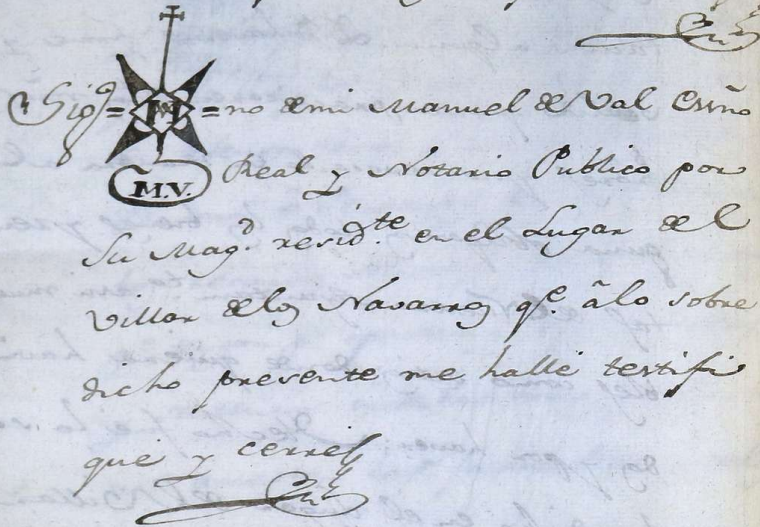 Sig = no de mi Manuel de Val Essno
M.V. Real y Notario Publico por
Su Magd. residte. en el Lugar del
Villar delos Navarros qe. âlo sobre
dicho presente me hallé testifi
qué y cerré